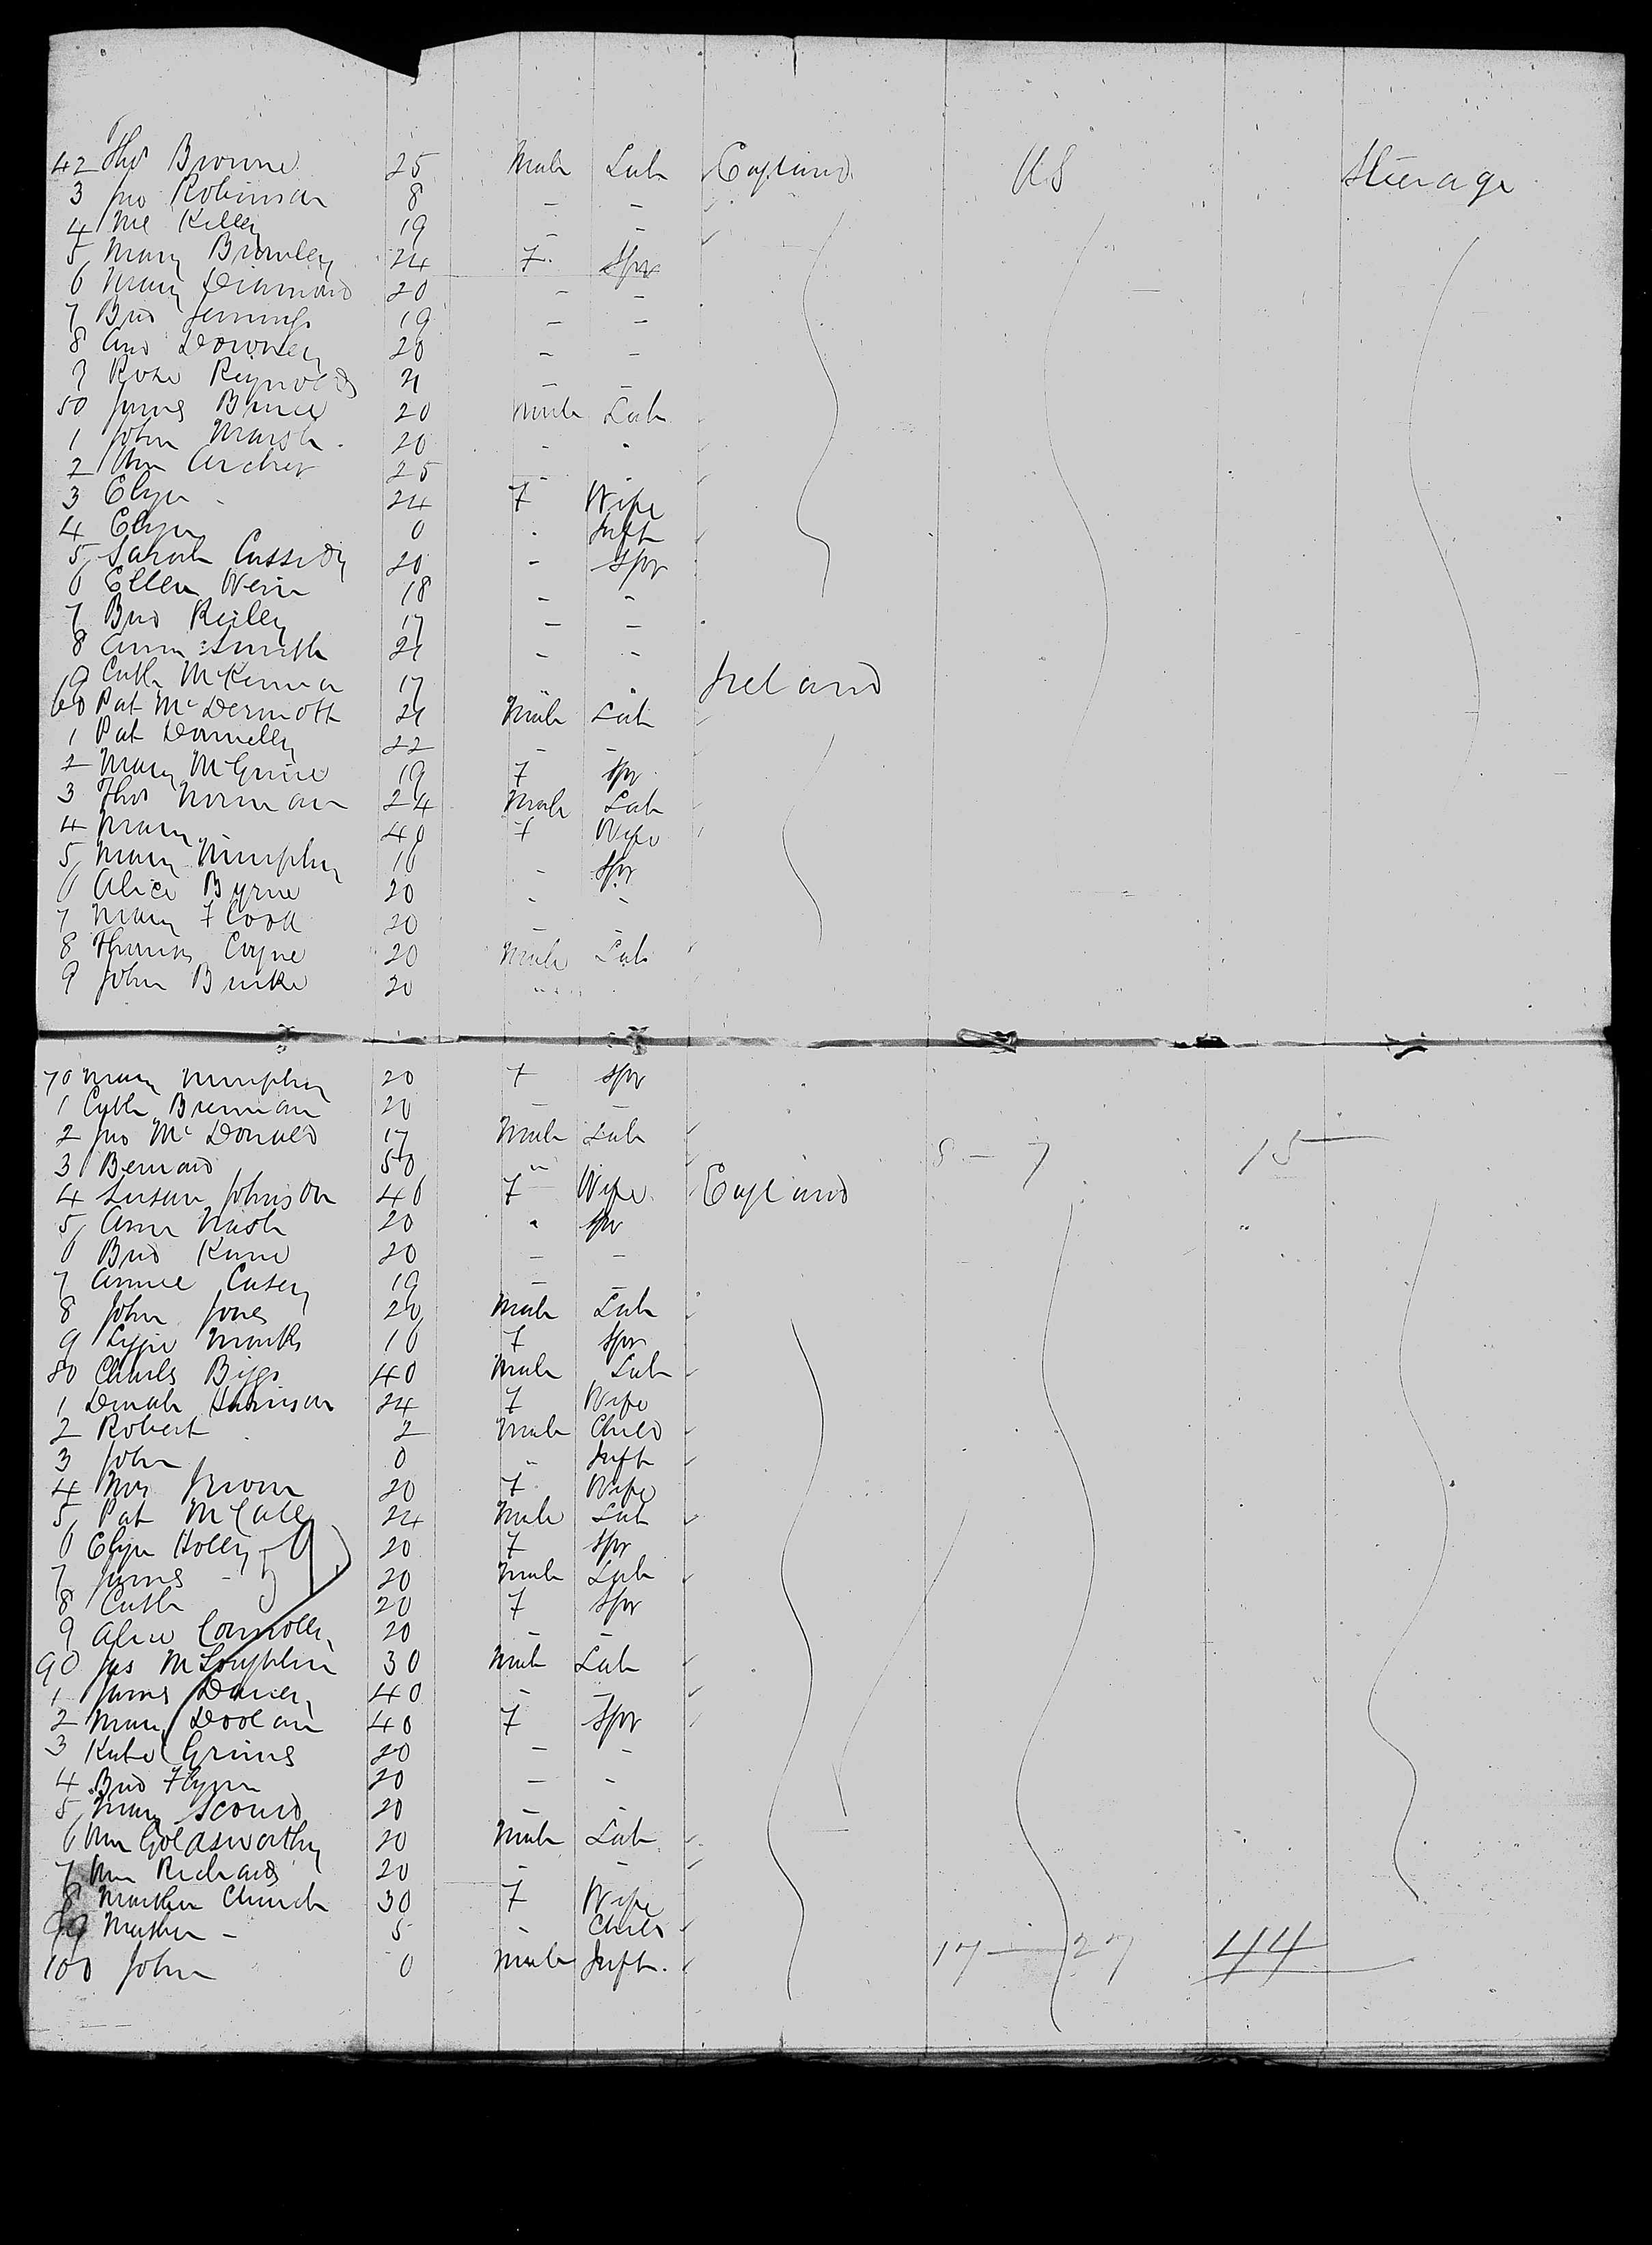 42 Thos Browne 25 Male Lab England US Steerage
3 Jno Robinson 8 - -
4 Mc Killey 19 - -
5 Mary Bromley 24 F. Spr
6 Mary Diamond 20 - -
7 Brid Jennings 19 - -
8 Ann Downey 20 - -
9 Rose Reynolds 21 - -
50 James Bruce 20 Male Lab
1 John Marsh 20 - -
2 Wm Archer 25 -
3 Eliza - 24 F Wife
4 Eliza 0 - Inft
5 Sarah Cassidy 20 - Spr
6 Ellen Weir 18 - -
7 Brid Reilly 17 - -
8 Ann Smith 21 - -
9 Cath McKenna 17 - Ireland
60 Pat McDermott 21 Male Lab
1 Pat Donnelly 22 - -
2 Mary McGuire 19 F Spr
3 Thos Norman 24 Male Lab
4 Mary 40 F Wife
5 Mary Murphy 16 - Spr
6 Alice Byrne 20 - -
7 Mary Flood 20 - -
8 Thomas Coyne 20 Male Lab
9 John Burke 20
70 Mary Murphy 20 F Spr
1 Cath Brennan 20 - -
2 Jno McDonald 17 Male Lab 8 - 7 15
3 Bernard 50 "
4 Susan Johnson 40 F Wife England
5 Ann Nash 20 " Spr
6 Brid Kane 20 - -
7 Annie Casey 19 - -
8 John Jones 20 Male Lab
9 Lizzie Marks 16 F Spr
80 Charles Biggs 40 Male Lab
1 Dinah Harrison 24 F Wife
2 Robert 2 Male Child
3 John 0 " Inft
4 Mrs 20 F Wife
5 Pat McCall 24 Male Lab
6 Eliza Holly 20 F Spr
7 James - 20 Male Lab
8 Cath 20 F Spr
9 Alice Connolly 20 - -
90 Jas McLoughlin 30 Male Lab
1 James 40 - -
2 Mary Doolan 40 F Spr
3 Kate Grimes 20 - -
4 Brid Flynn 20 - -
5 Mary 20 - -
6 Wm Goldsworthy 20 Male Lab
7 Wm Richards 20 - -
8 Martha Church 30 F Wife
99 Martha - 5 - Child
100 John 0 Male Inft. 17 - 27 44